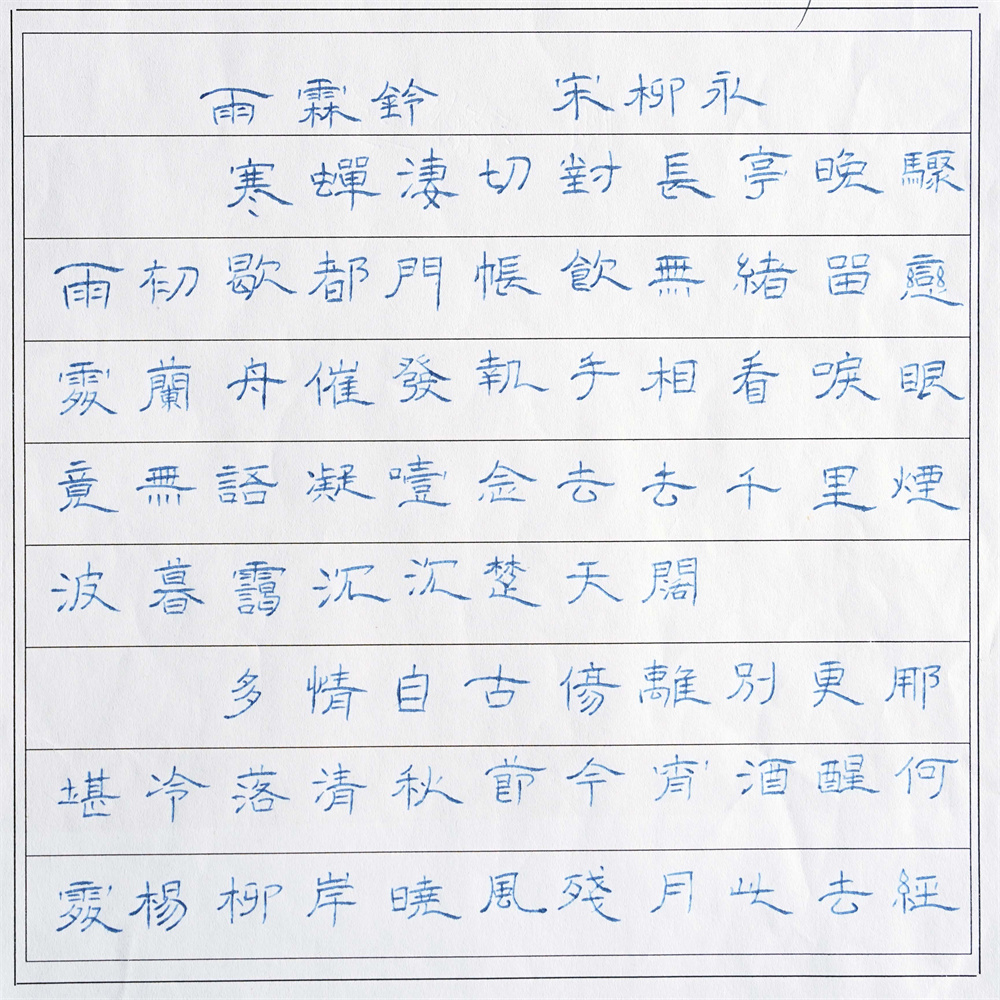 雨霖鈴 宋柳永
寒蟬淒切對長亭晚驟
雨初歇都門帳飲無緒留戀
處蘭舟催發執手相看唳眼
竟無語凝噎念去去千里煙
波暮靄沉沉楚天闊
多情自古傷離別更那
堪冷落清秋節今宵酒醒何
處楊柳岸曉風殘月此去經